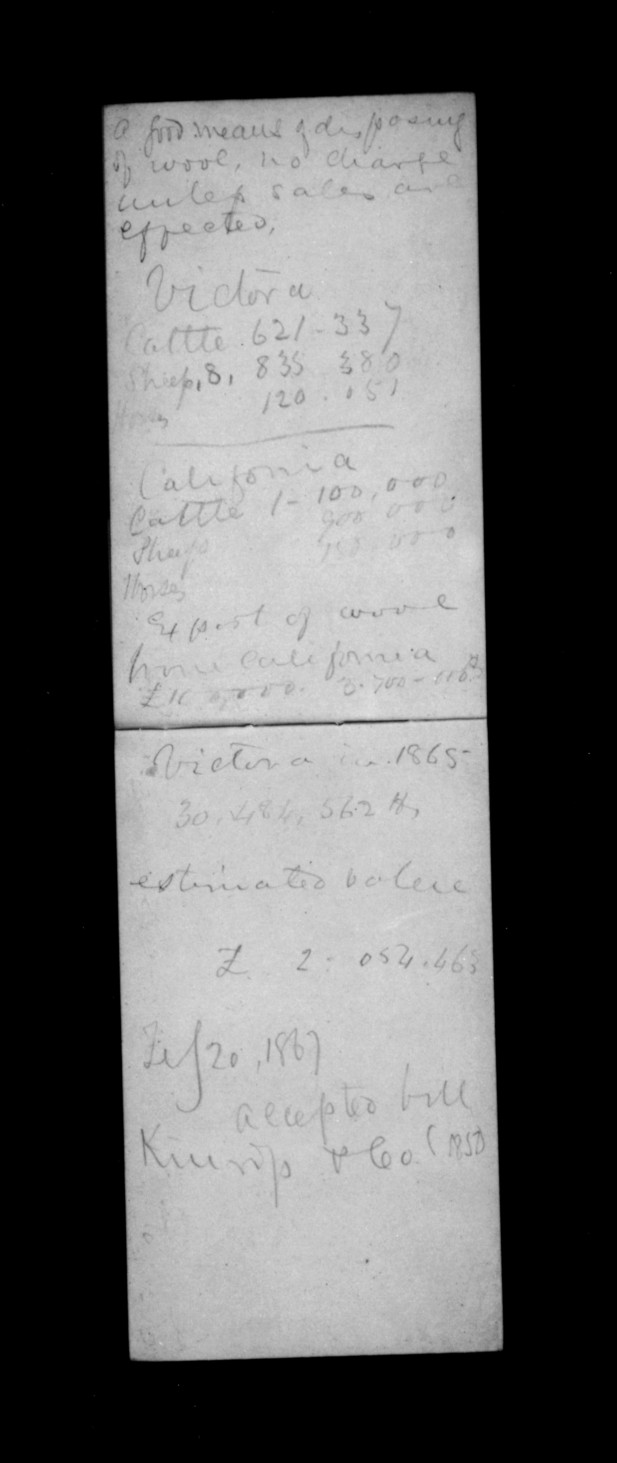 a good means of disposing
of wool, no charge
unless sales are
effected.
Victoria
Cattle 621-337
Sheep, 8, 835 380
Horses 120.051
California
Cattle 1-100,000
Sheep 900 000
Horses 000
Export of wool
from California
£ 3.700-000
Victoria in 1865
30.484,562 lb,
estimated value
£ 2. 054.465
Feby 20, 1867
accepted bill
& Co.